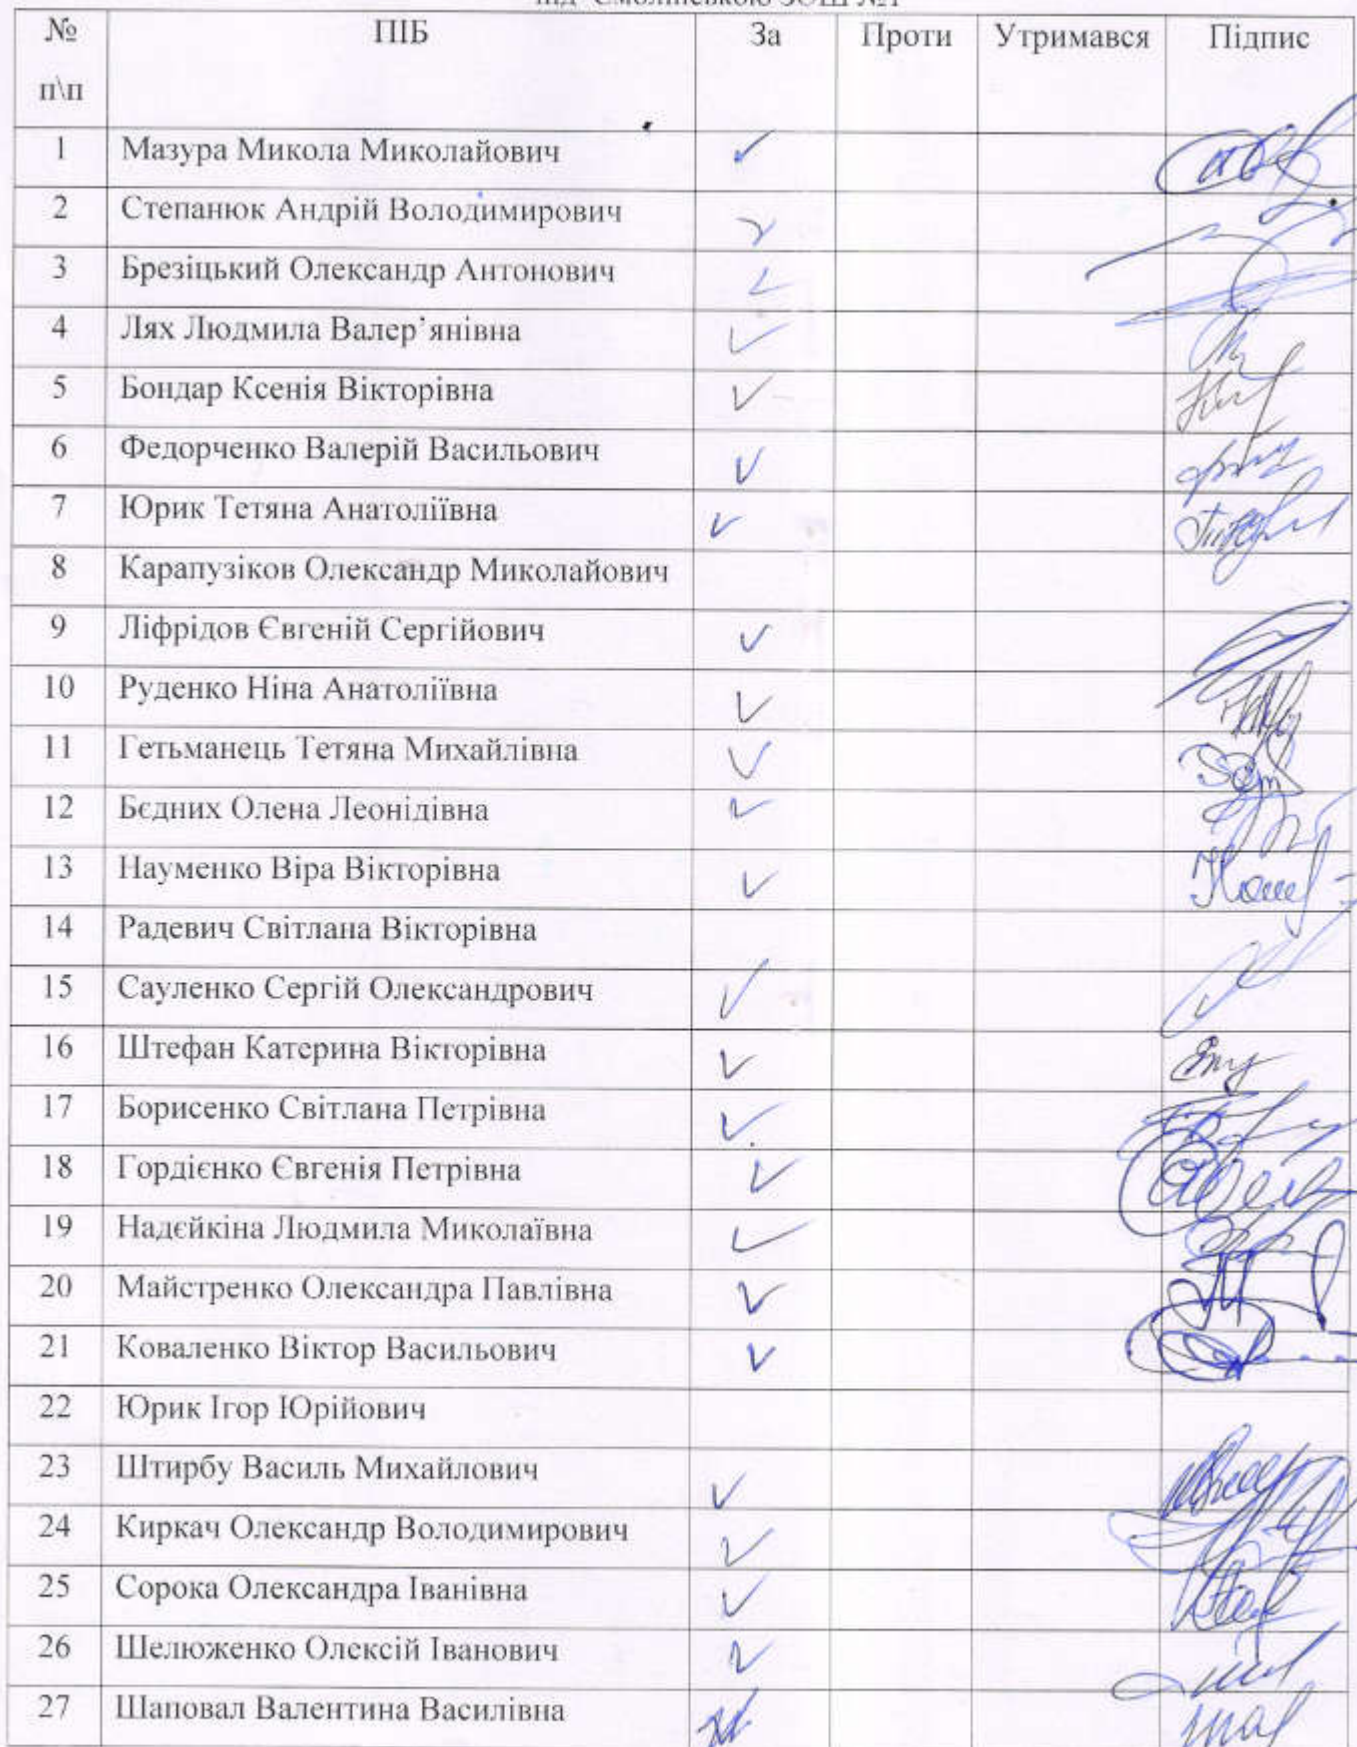 Смолінською ЗОШ №1
№ п\п ПІБ За Проти Утримався Підпис
1 Мазура Микола Миколайович
2 Степанюк Андрій Володимирович
3 Брезіцький Олександр Антонович
4 Лях Людмила Валер’янівна
5 Бондар Ксенія Вікторівна
6 Федорченко Валерій Васильович
7 Юрик Тетяна Анатоліївна
8 Карапузіков Олександр Миколайович
9 Ліфрідов Євгеній Сергійович
10 Руденко Ніна Анатоліївна
11 Гетьманець Тетяна Михайлівна
12 Бєдних Олена Леонідівна
13 Науменко Віра Вікторівна
14 Радевич Світлана Вікторівна
15 Сауленко Сергій Олександрович
16 Штефан Катерина Вікторівна
17 Борисенко Світлана Петрівна
18 Гордієнко Євгенія Петрівна
19 Надєйкіна Людмила Миколаївна
20 Майстренко Олександра Павлівна
21 Коваленко Віктор Васильович
22 Юрик Ігор Юрійович
23 Штирбу Василь Михайлович
24 Киркач Олександр Володимирович
25 Сорока Олександра Іванівна
26 Шелюженко Олексій Іванович
27 Шаповал Валентина Василівна